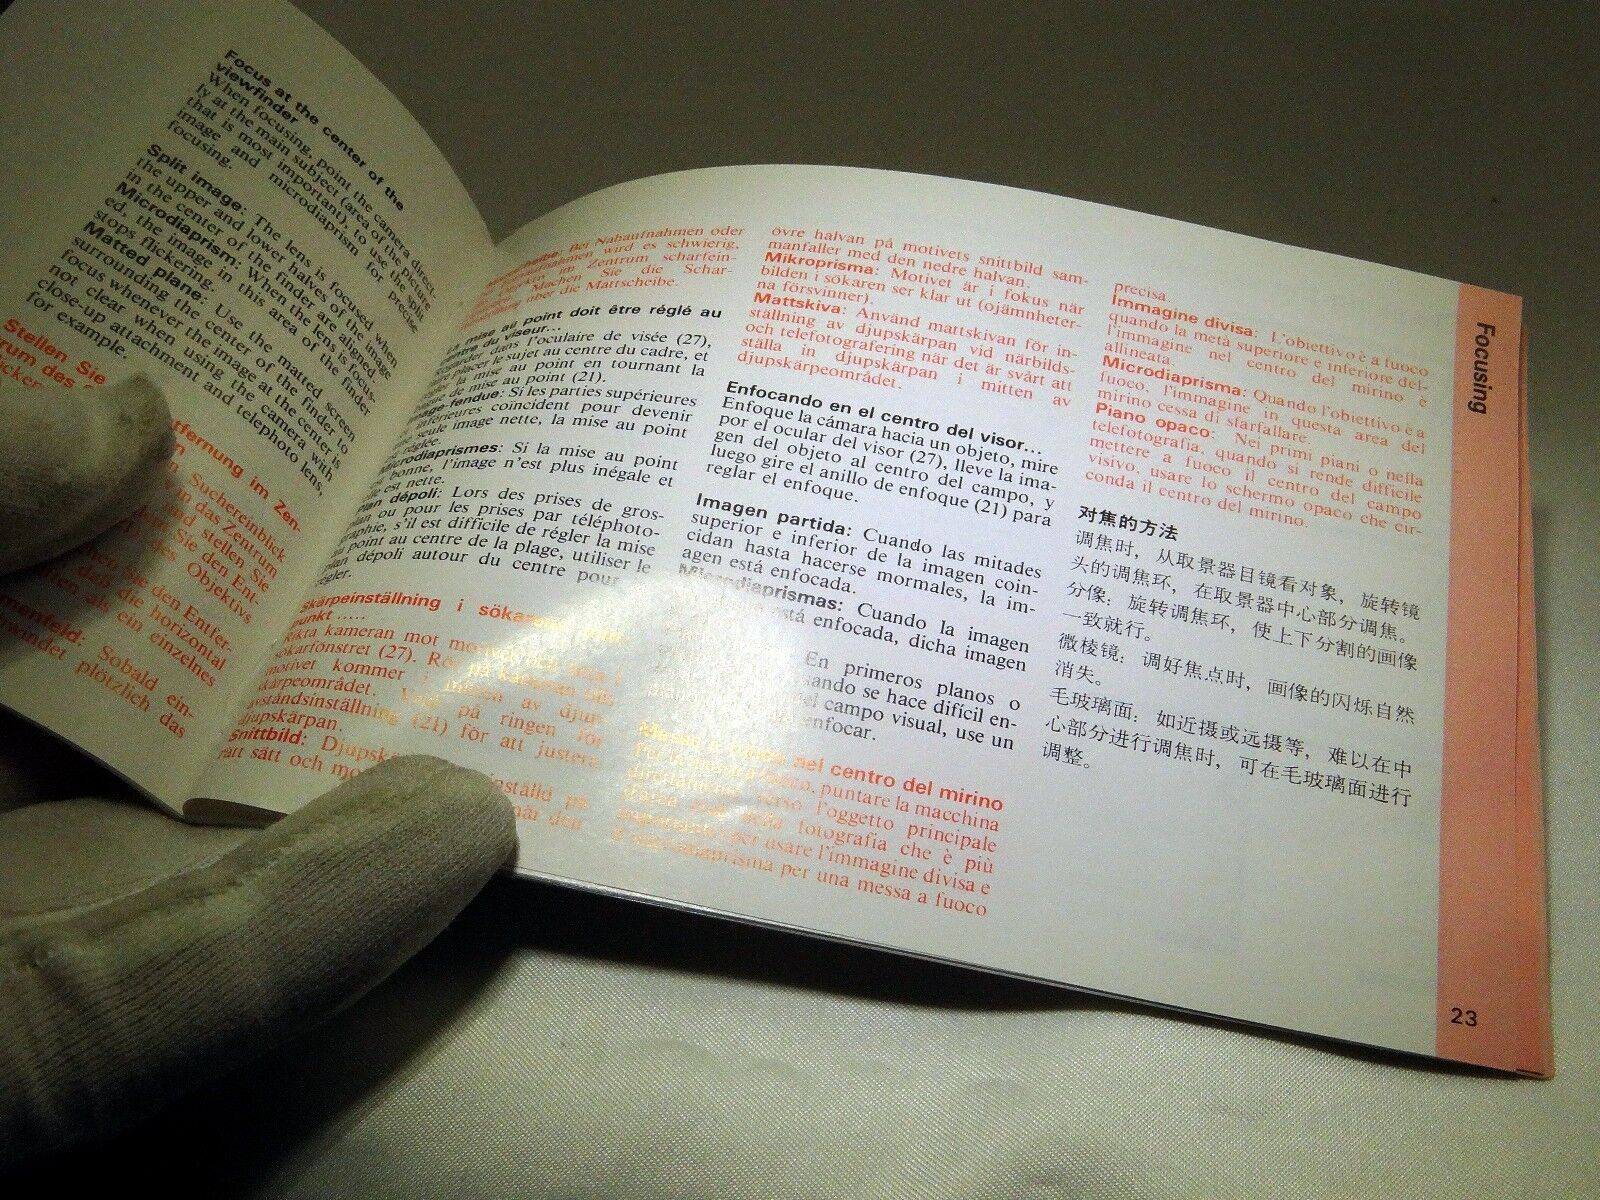 Focus at the center of the
viewfinder
When focusing, point the camera direct-
ly at the main subject (area of the picture
that is most important), to use the split
image and microdiaprism for precise
focusing.
Split image: The lens is focused when
the upper and lower halves of the image
in the center of the finder are aligned.
Microdiaprism: When the lens is focus-
ed, the image in this area of the finder
stops flickering.
Matted plane: Use the matted screen
surrounding the center of the finder to
focus whenever the image at the center is
not clear when using the camera with
close-up attachment and telephoto lens,
for example.
Stellen Sie
fernung im Zen-
rum des
Suchereinblick
in das Zentrum
und stellen Sie
Sie den Ent-
des Objektivs
Sie den Entfer-
daß die horizontal
als ein einzelnes
menfeld: Sobald ein-
windet plötzlich das
Bei Nahaufnahmen oder
wird es schwierig,
im Zentrum scharfein-
Machen Sie die Schar-
über die Mattscheibe.
La mise au point doit être réglé au
centre du viseur...
dans l'oculaire de visée (27),
placer le sujet au centre du cadre, et
la mise au point en tournant la
de mise au point (21).
Image fendue: Si les parties supérieures
inférieures coïncident pour devenir
seule image nette, la mise au point
réglée.
Microdiaprismes: Si la mise au point
bonne, l'image n'est plus inégale et
est nette.
Plan dépoli: Lors des prises de gros-
plan ou pour les prises par téléphoto-
graphie, s'il est difficile de régler la mise
au point au centre de la plage, utiliser le
plan dépoli autour du centre pour
régler.
Skärpeinställning i sökarens
punkt .....
Rikta kameran mot motivet
sökarfönstret (27). Rör på kameran tills
motivet kommer i mitten av djup-
skärpeområdet. Vrid på ringen för
avståndsinställning (21) för att justera
djupskärpan.
Snittbild: Djupskärpan
rätt sätt och
inställd på
när den
övre halvan på motivets snittbild sam-
manfaller med den nedre halvan.
Mikroprisma: Motivet är i fokus när
bilden i sökaren ser klar ut (ojämnheter-
na försvinner).
Mattskiva: Använd mattskivan för in-
ställning av djupskärpan vid närbilds-
och telefotografering när det är svårt att
ställa in djupskärpan i mitten av
djupskärpeområdet.
Enfocando en el centro del visor...
Enfoque la cámara hacia un objeto, mire
por el ocular del visor (27), lleve la ima-
gen del objeto al centro del campo, y
luego gire el anillo de enfoque (21) para
reglar el enfoque.
Imagen partida: Cuando las mitades
superior e inferior de la imagen coin-
cidan hasta hacerse mormales, la im-
agen está enfocada.
Microdiaprismas: Cuando la imagen
está enfocada, dicha imagen
En primeros planos o
cuando se hace difícil en-
el campo visual, use un
enfocar.
nel centro del mirino
puntare la macchina
direttamente verso l'oggetto principale
della fotografia che è più
per usare l'immagine divisa e
il microdiaprisma per una messa a fuoco
precisa.
Immagine divisa: L'obiettivo è a fuoco
quando la metà superiore e inferiore del-
l'immagine nel centro del mirino è
allineata.
Microdiaprisma: Quando l'obiettivo è a
fuoco, l'immagine in questa area del
mirino cessa di sfarfallare.
Piano opaco: Nei primi piani o nella
telefotografia, quando si rende difficile
mettere a fuoco il centro del campo
visivo, usare lo schermo opaco che cir-
conda il centro del mirino.
对焦的方法
调焦时，从取景器目镜看对象，旋转镜
头的调焦环，在取景器中心部分调焦。
分像：旋转调焦环，使上下分割的画像
一致就行。
微棱镜：调好焦点时，画像的闪烁自然
消失。
毛玻璃面：如近摄或远摄等，难以在中
心部分进行调焦时，可在毛玻璃面进行
调整。
Focusing
23